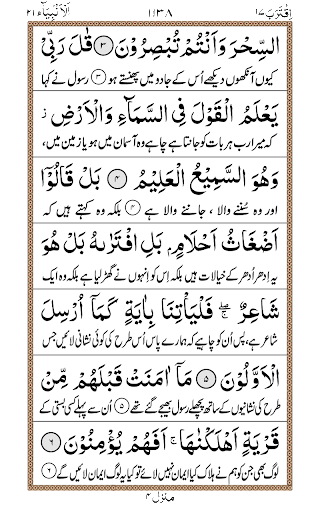 اِقْتَرَبَ ۱۷ ۱۱۳۸ اَلْاَنْۢبِیَآء ۲۱
السِّحْرَ وَاَنْتُمْ تُبْصِرُوْنَ ۝۳ قٰلَ رَبِّیْ
کیوں آنکھوں دیکھے اُس کے جادو میں پھنستے ہو ۳ رسول نے کہا
یَعْلَمُ الْقَوْلَ فِی السَّمَآءِ وَالْاَرْضِ ز
کہ میرا رب ہر بات کو جانتا ہے چاہے وہ آسمان میں ہو یا زمین میں،
وَهُوَ السَّمِیْعُ الْعَلِیْمُ ۝۴ بَلْ قَالُوْۤا
اور وہ سُننے والا ، جاننے والا ہے ۴ بلکہ وہ کہتے ہیں کہ
اَضْغَاثُ اَحْلَامٍۭ بَلِ افْتَرٰىهُ بَلْ هُوَ
یہ اِدھر اُدھر کے خیالات ہیں بلکہ اِس کو انہوں نے گھڑ لیا ہے بلکہ وہ ایک
شَاعِرٌ ۖۚ فَلْیَاْتِنَا بِاٰیَةٍ كَمَاۤ اُرْسِلَ
شاعر ہے، پس اُن کو چاہیے کہ ہمارے پاس اُس طرح کی کوئی نشانی لائیں جس
الْاَوَّلُوْنَ ۝۵ مَاۤ اٰمَنَتْ قَبْلَهُمْ مِّنْ
طرح کی نشانیوں کے ساتھ پچھلے رسول بھیجے گئے تھے ۵ اُن سے پہلے کسی بستی کے
قَرْیَةٍ اَهْلَكْنٰهَا ۚ اَفَهُمْ یُؤْمِنُوْنَ ۝۶
لوگ بھی جن کو ہم نے ہلاک کیا ایمان نہیں لائے تو کیا یہ لوگ ایمان لائیں گے ۶
منزل ۴